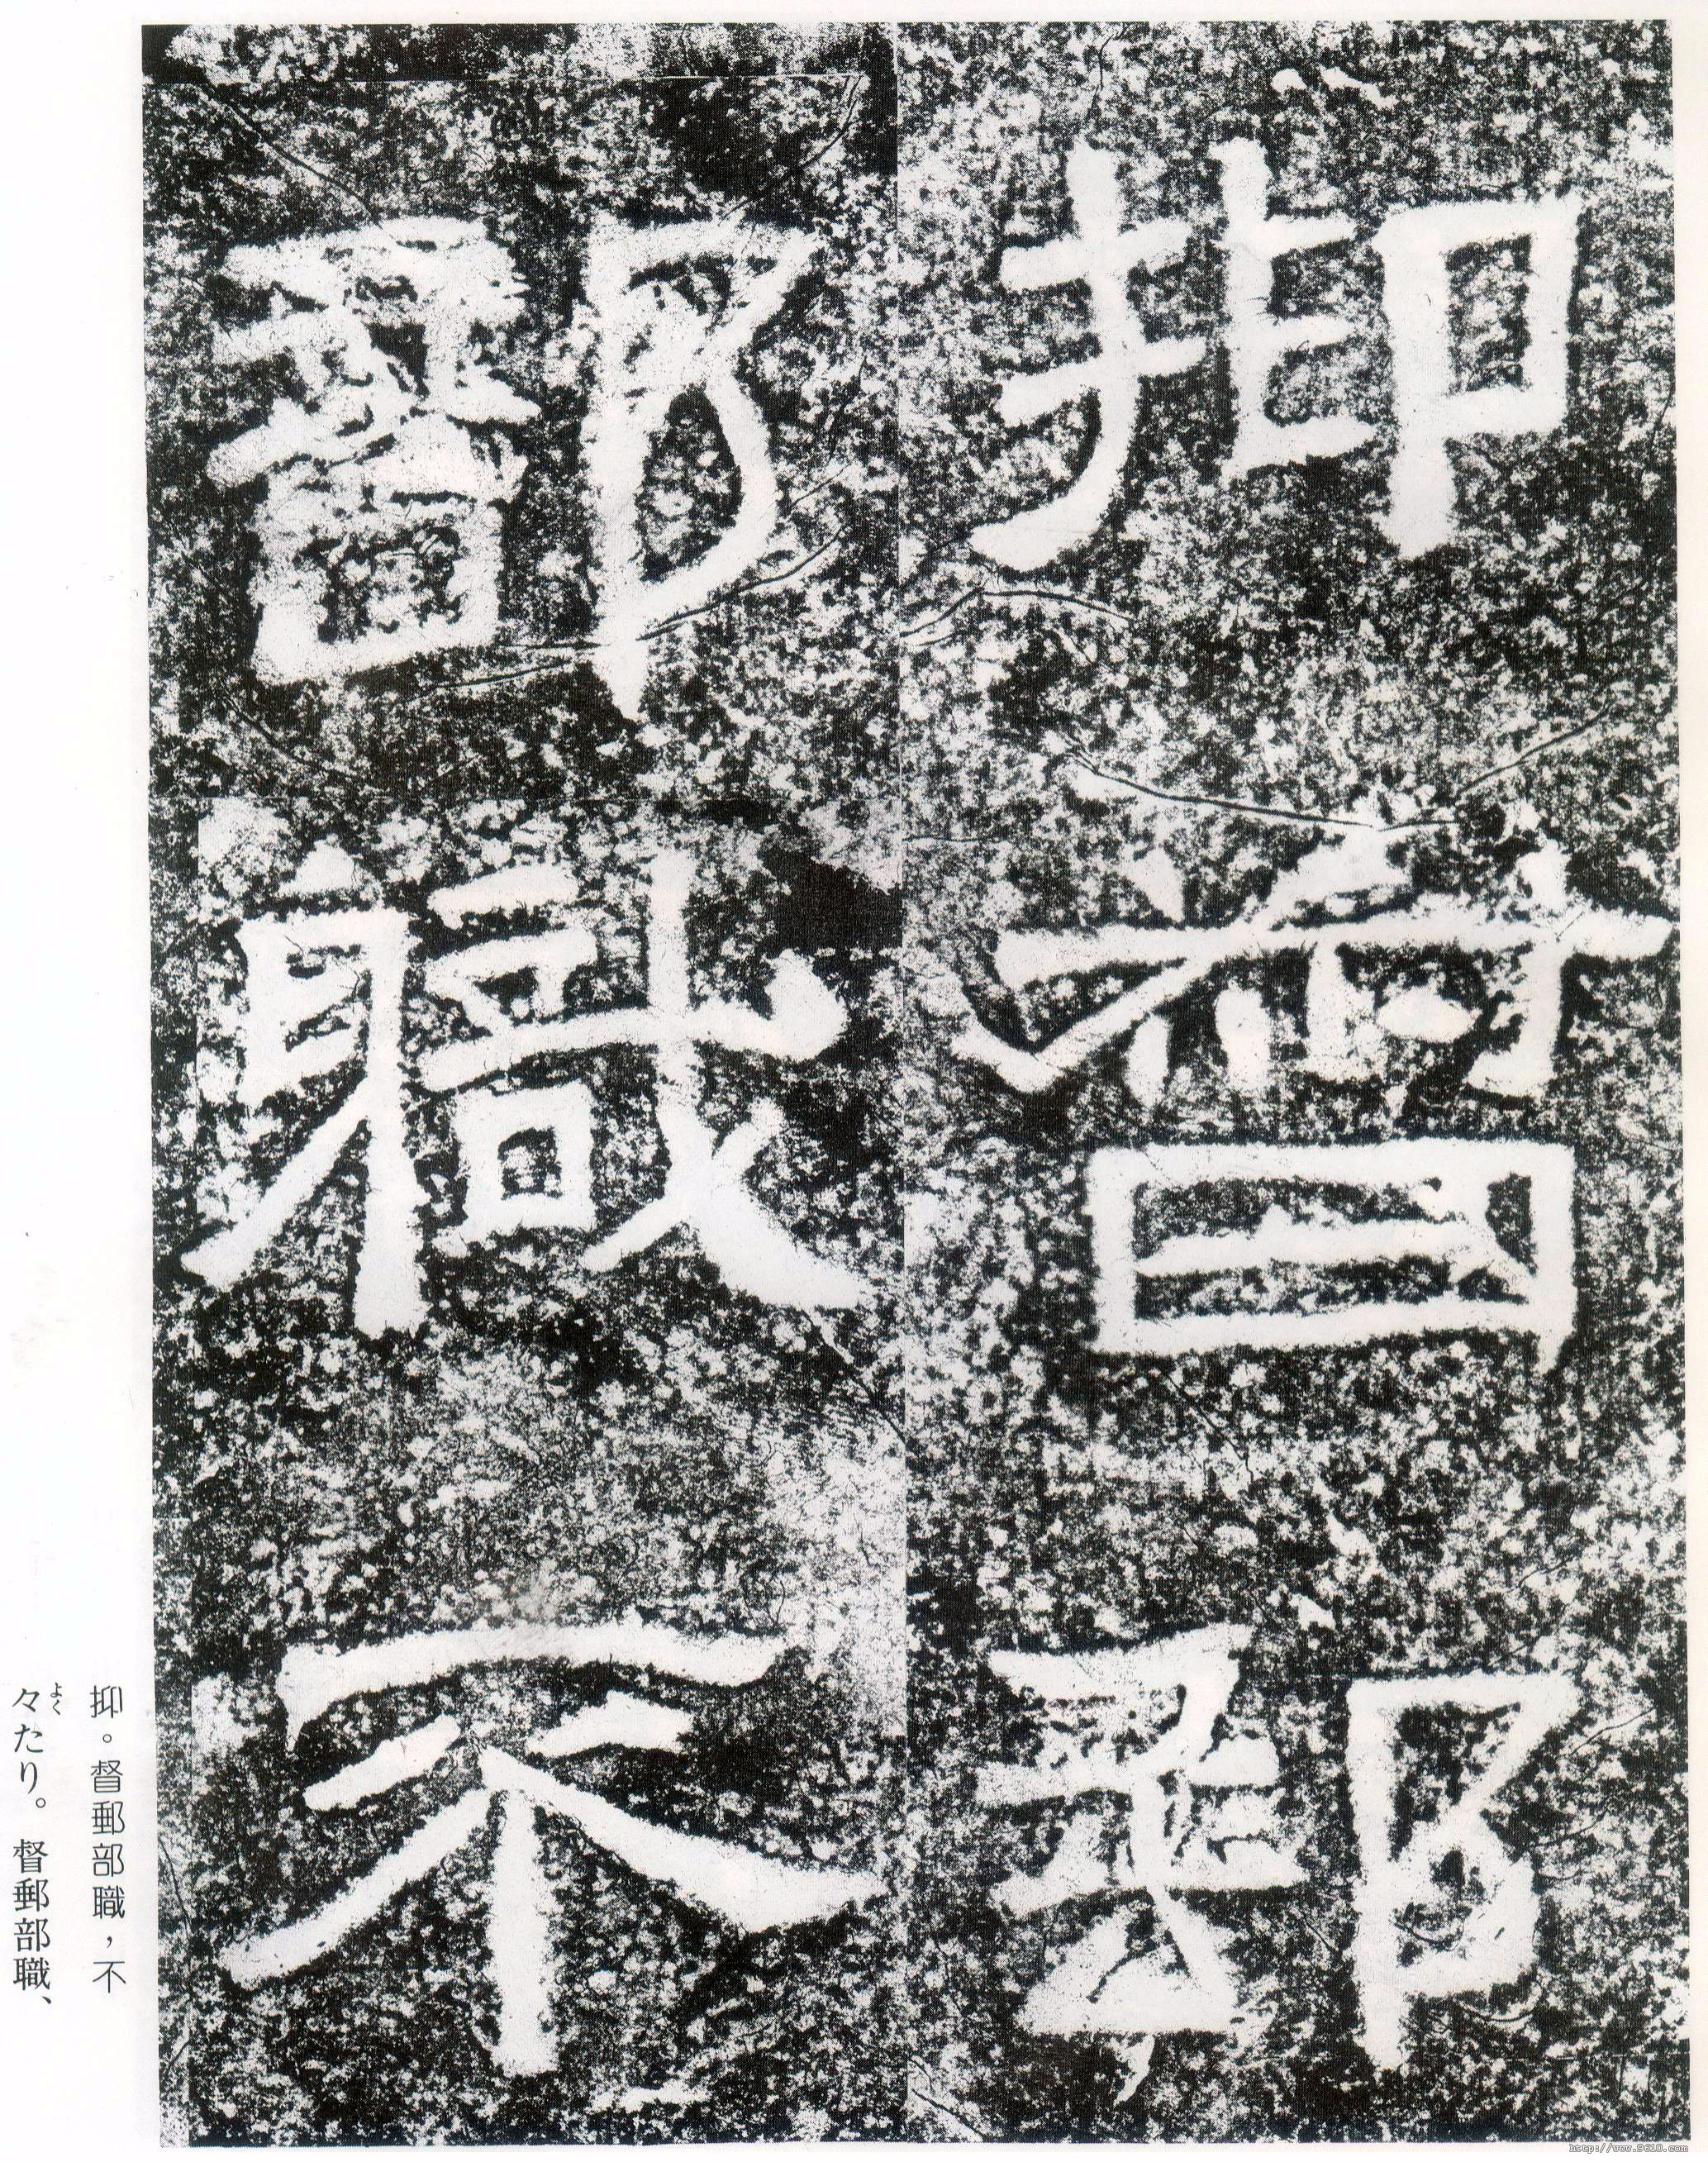 抑督郵
部職不
抑。督郵部職，不
々たり。督郵部職、
よく
http://www.9610.com